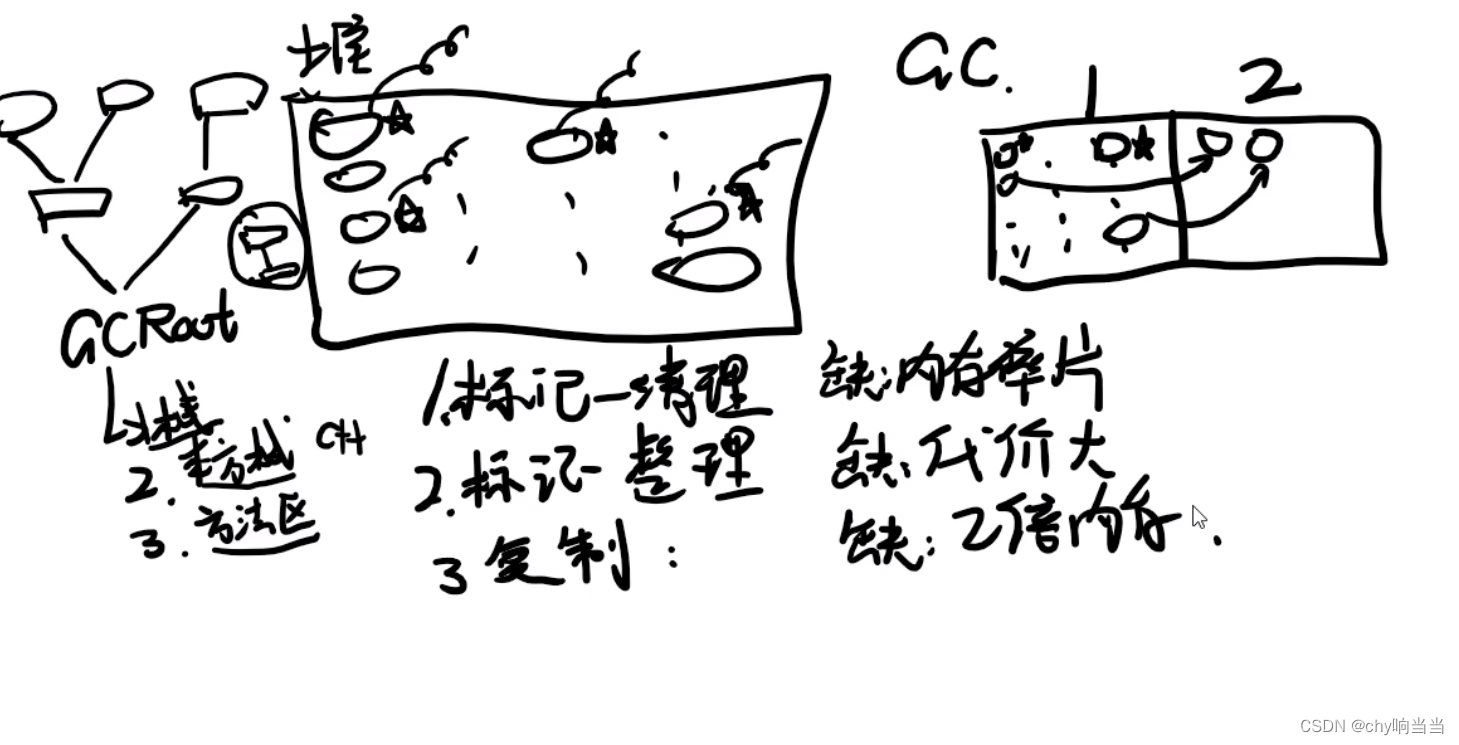 堆
GC.
1 2
GCRoot
1.栈
2.本方栈 CH
3.方法区
1.标记一清理 缺:内存碎片
2.标记-整理 缺:代价大
3 复制: 缺:2倍内存.
CSDN @chy响当当